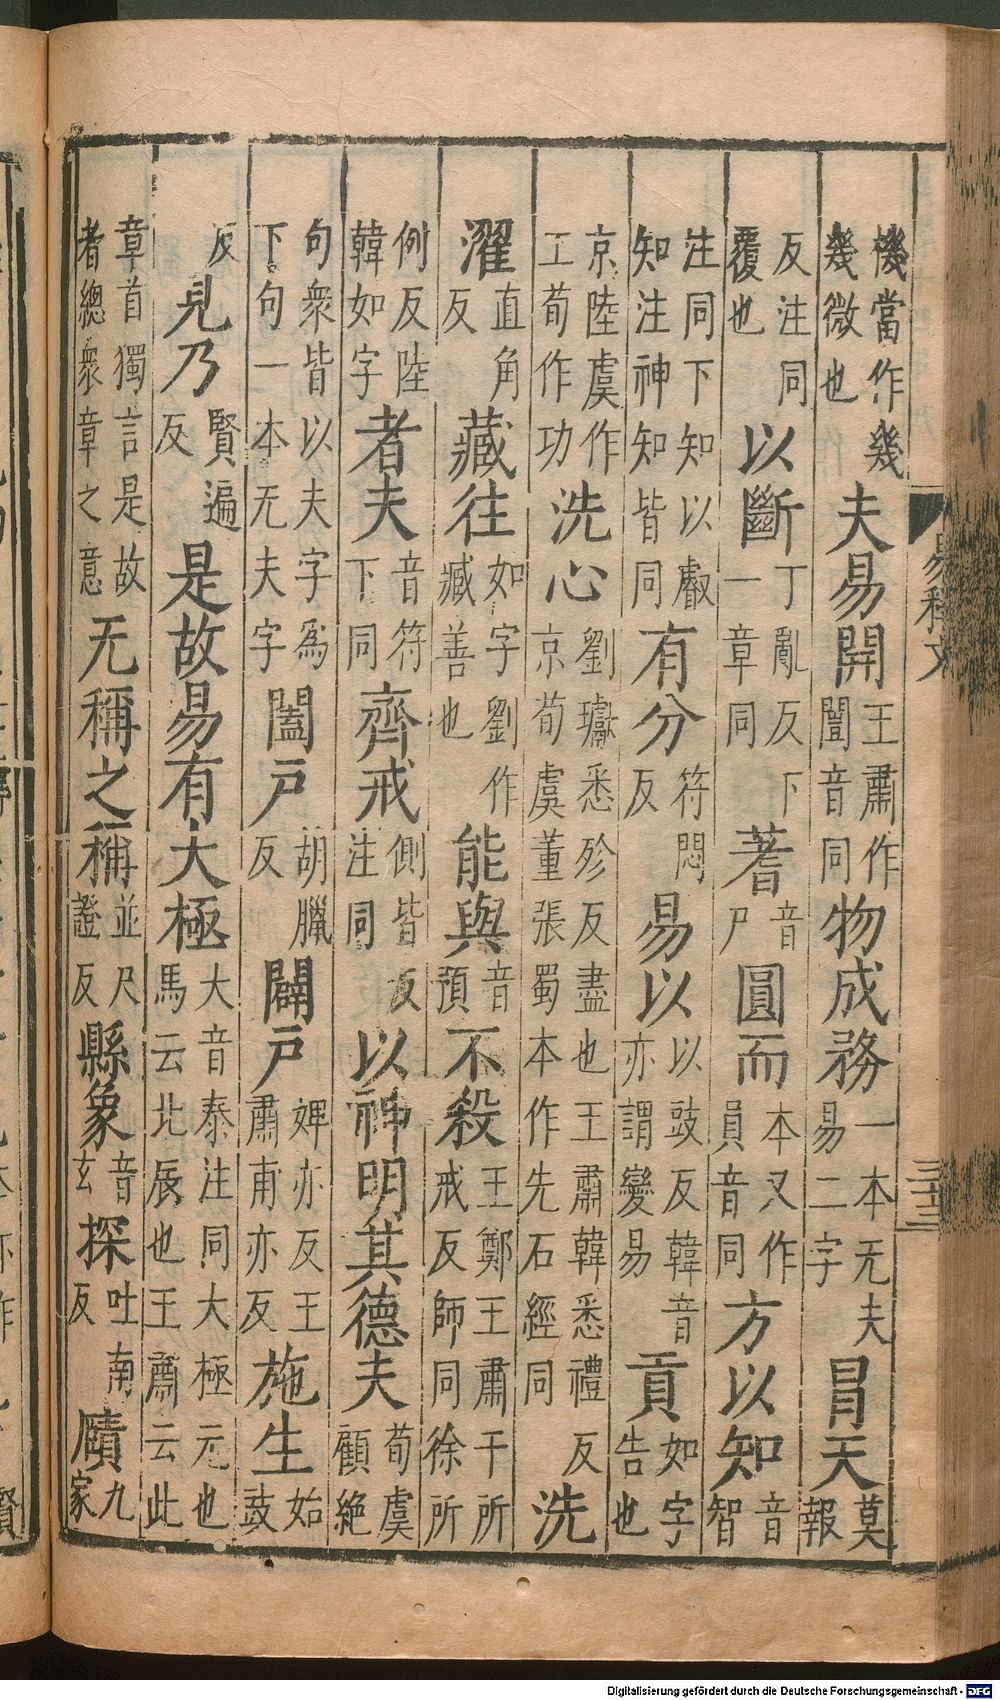 機當作幾幾微也夫易開王肅作闓音同物成務一本无夫易二字冒天莫報
反注同覆也以斷丁亂反下一章同蓍音尸圓而本又作員音同方以知音智
注同下知以叡知注神知皆同有分符悶反易以以豉反韓音亦謂變易貢如字告也
京陸虞作工荀作功洗心劉瓛悉殄反盡也王肅韓悉禮反京荀虞董張蜀本作先石經同洗
濯直角反藏往如字劉作臧善也能與音預不殺王鄭王肅干所戒反師同徐所
例反陸韓如字者夫音符下同齊戒側皆反注同以神明其德夫荀虞顧絶
句衆皆以夫字爲下句一本无夫字闔戶胡臘反闢戶婢亦反王肅甫亦反施生始豉
反見乃賢遍反是故易有大極大音泰注同大極无也馬云北辰也王肅云此
章首獨言是故者總衆章之意无稱之稱並尺證反縣象音玄探吐南反賾九家
易釋文
三十三
Digitalisierung gefördert durch die Deutsche Forschungsgemeinschaft - DFG